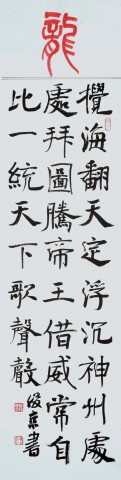 龍
攪海翻天定浮沉神州處
處拜圖騰帝王借威常自
比一統天下歌聲聲
俊京書